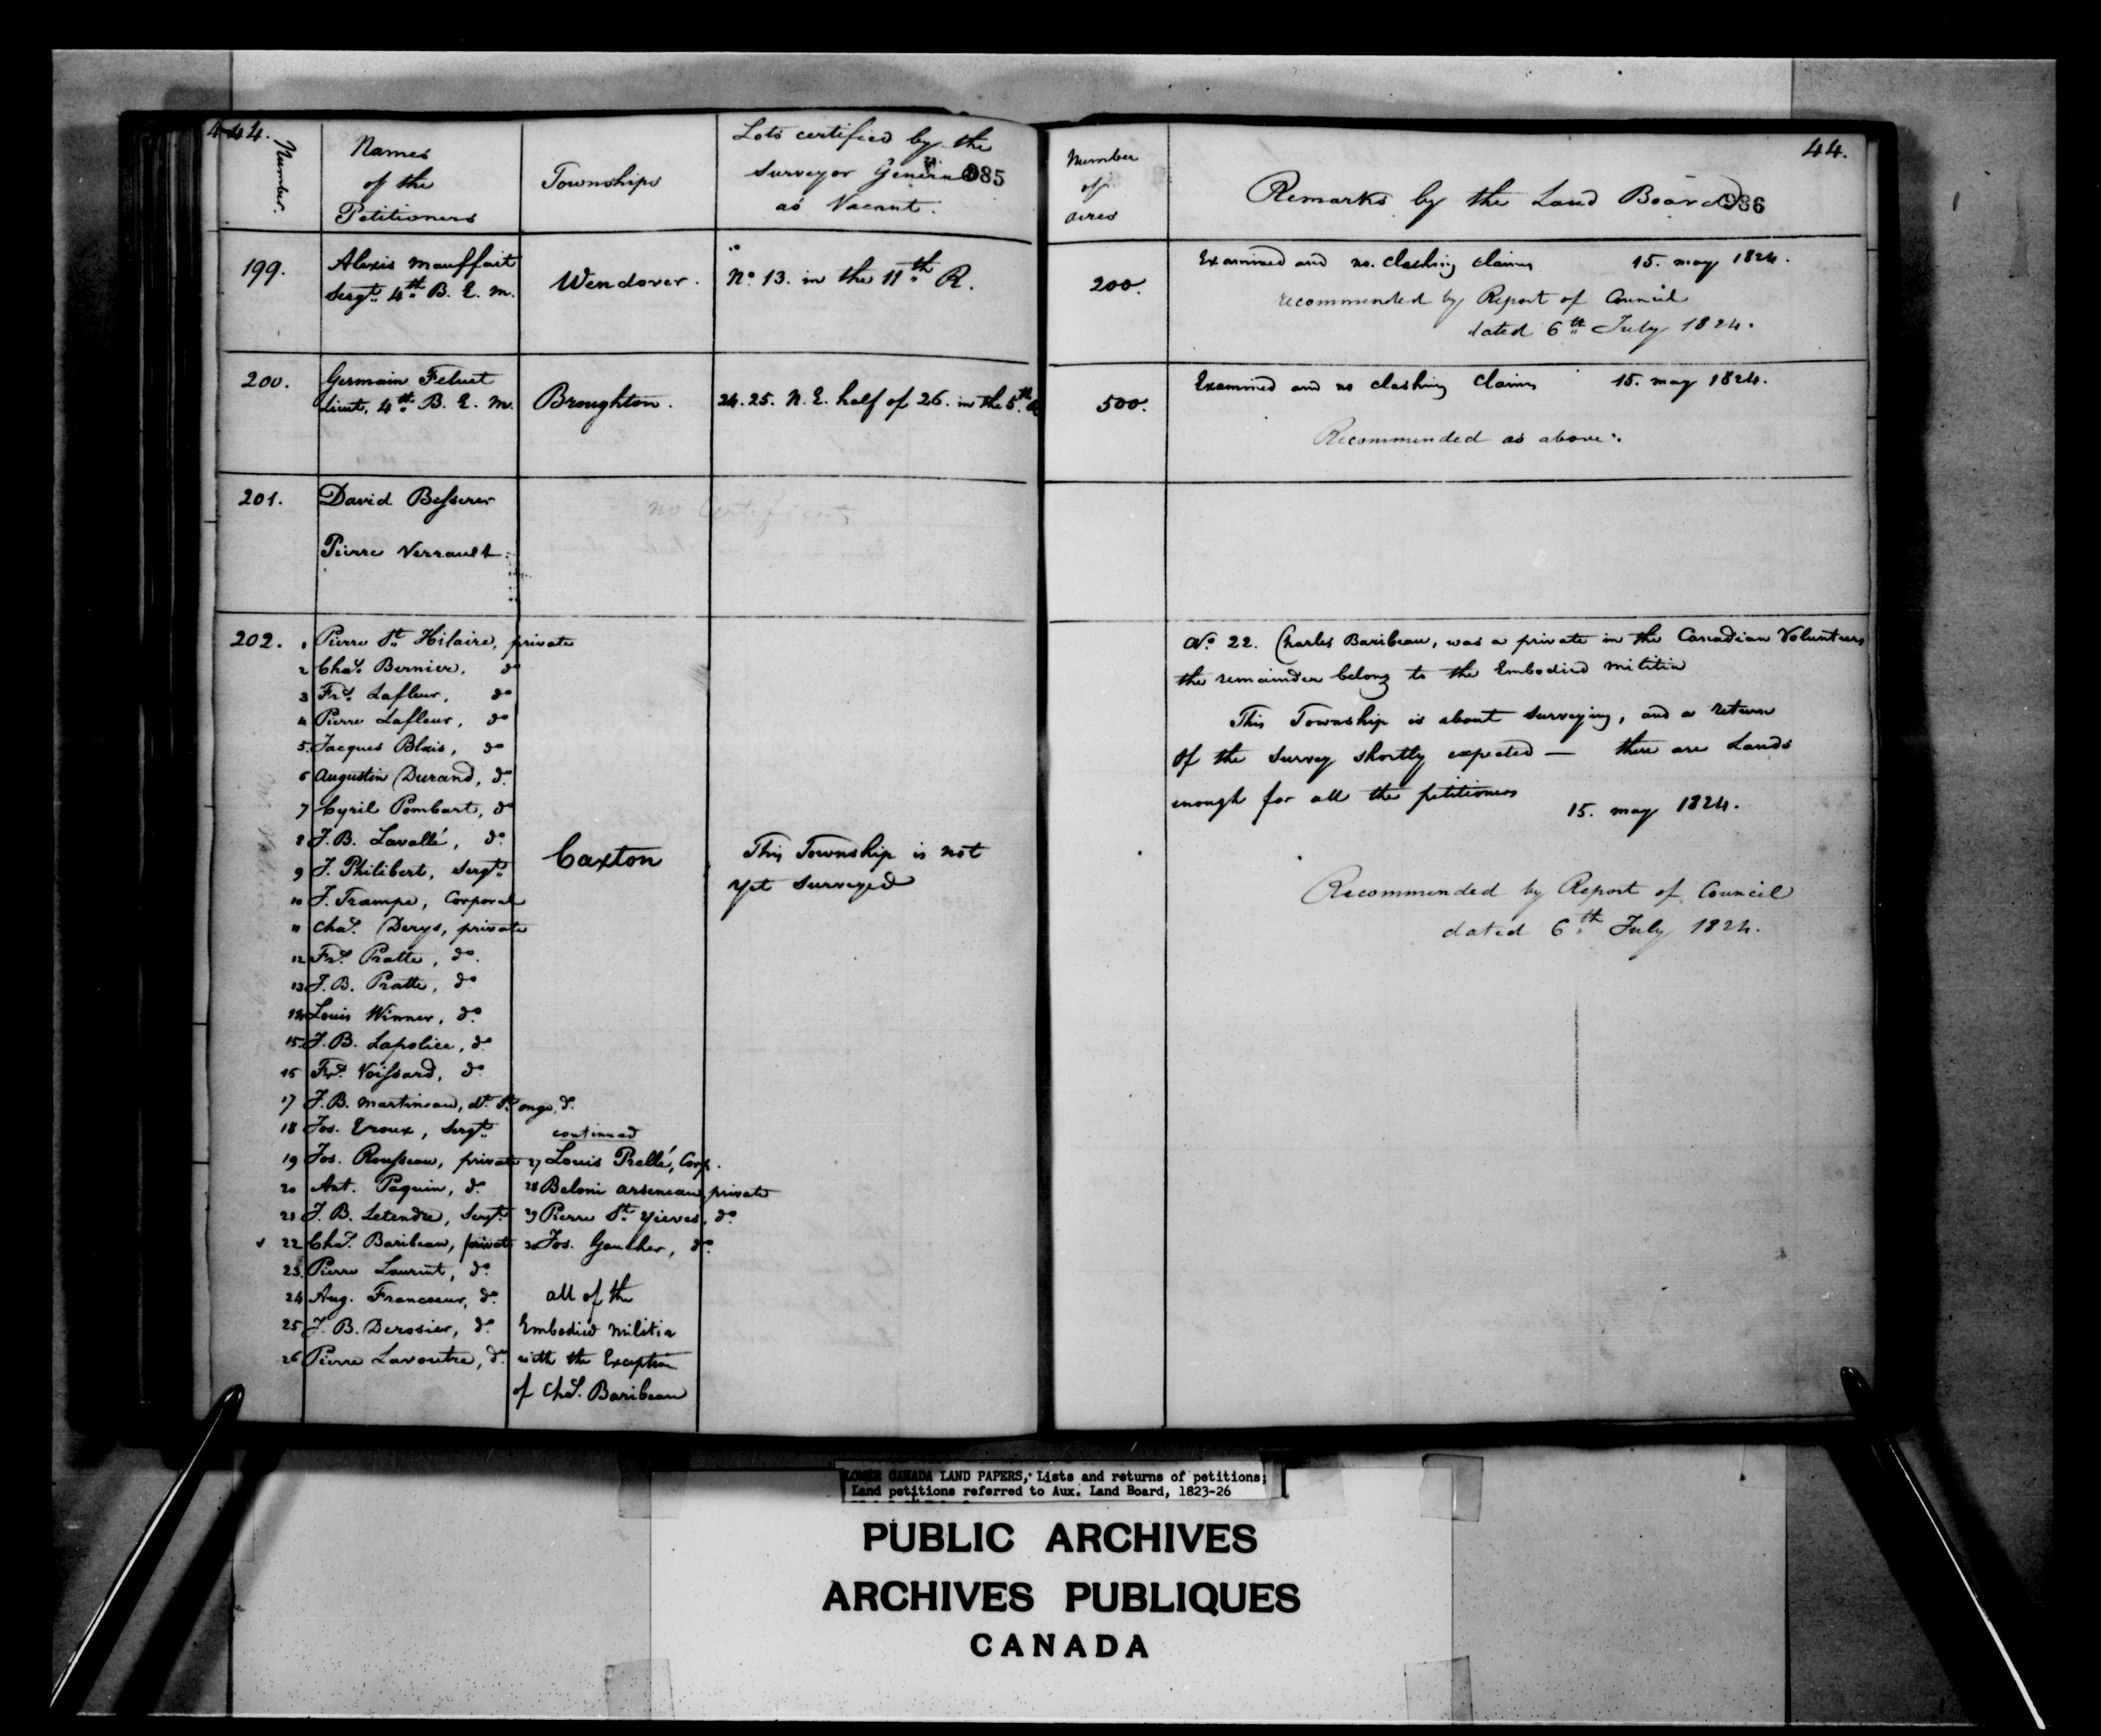 444.
Number.
Names
of the
Petitioners
Townships
Lots certified by the
Surveyor General
as Vacant.
985
199.
Alexis Mauffait
Sergt. 4th B. E. M.
Wendover.
No 13. in the 11th R.
200.
Germain
Lieut, 4th B. E. M.
Broughton.
24. 25. N. E. half of 26. in the 5th R
201.
David Besserer
Pierre Verrault
no Certificate
202.
1 Pierre St. Hilaire, private
2 Chas. Bernier, do
3 Frs. Lafleur, do
4 Pierre Lafleur, do
5. Jacques Blais, do
6 Augustin Durand, do
7 Cyril Pombart, do
8 J. B. Lavallé, do
9 J. Philibert, Sergt.
10 J. Trampe, Corporal
11 Chas. Derys, private
12 Frs. Pratte, do.
13 J. B. Pratte, do
14 Louis Winner, do.
15. J. B. Lapolice, do.
16 Frs. Voissard, do.
17 J. B. Martineau, dt. St onge, do.
18 Jos. Eroux, Sergt.
19 Jos. Rousseau, private
20 Ant. Paquin, do.
21 J. B. Letendre, Sergt.
22 Chas. Baribeau, private
23. Pierre Laurent, do.
24 Aug. Francoeur, do.
25 J. B. Derosier, do.
26 Pierre Lavoutre, do.
Caxton
continued
27 Louis Prellé, Corp.
28 Beloni Arseneau, private
29 Pierre St. Yieves, do.
30 Jos. Gaucher, do.
all of the
Embodied Militia
with the Exception
of Chas. Baribeau
This Township is not
yet Surveyed
44.
Number
of
acres
Remarks by the Land Board
986
200.
Examined and no. clashing claims 15. may 1824.
recommended by Report of Council
dated 6th July 1824.
500.
Examined and no clashing claims 15. may 1824.
Recommended as above.
No. 22. Charles Baribeau, was a private in the Canadian Volunteers
the remainder belong to the Embodied Militia
This Township is about Surveying, and a return
of the Survey shortly expected — there are Lands
enough for all the petitioners
15. may 1824.
Recommended by Report of Council
dated 6th July 1824.
LOWER CANADA LAND PAPERS, Lists and returns of petitions;
Land petitions referred to Aux. Land Board, 1823-26
PUBLIC ARCHIVES
ARCHIVES PUBLIQUES
CANADA